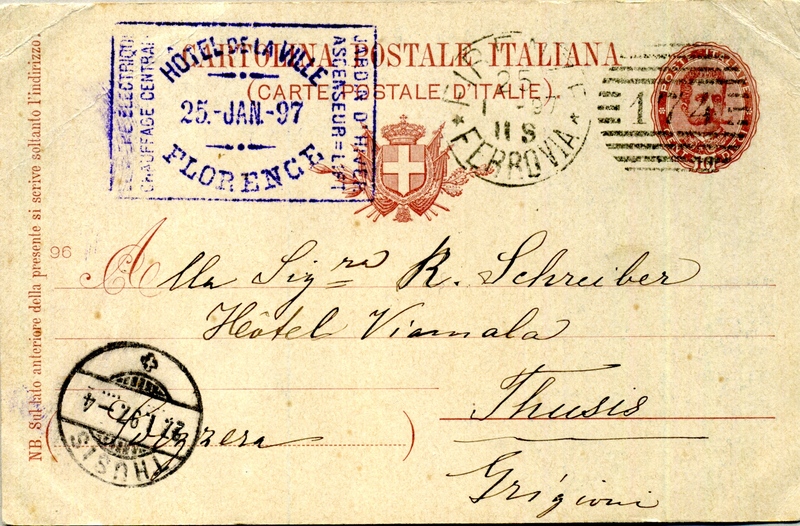 CARTOLINA POSTALE ITALIANA
(CARTE POSTALE D'ITALIE)
HÔTEL DE LA VILLE
25.-JAN.-97
FLORENCE
CHAUFFAGE CENTRAL
JARDIN D'HIVER
ASCENSEUR=LIFT
FIRENZE
25
1-97
11 S
FERROVIA
174
10
NB. Sul lato anteriore della presente si scrive soltanto l'indirizzo
96
Alla Sig.ra R. Schreiber
Hôtel Viamala
Thusis
(Svizzera)
Grigioni
THUSIS
27. I. 97. - 4